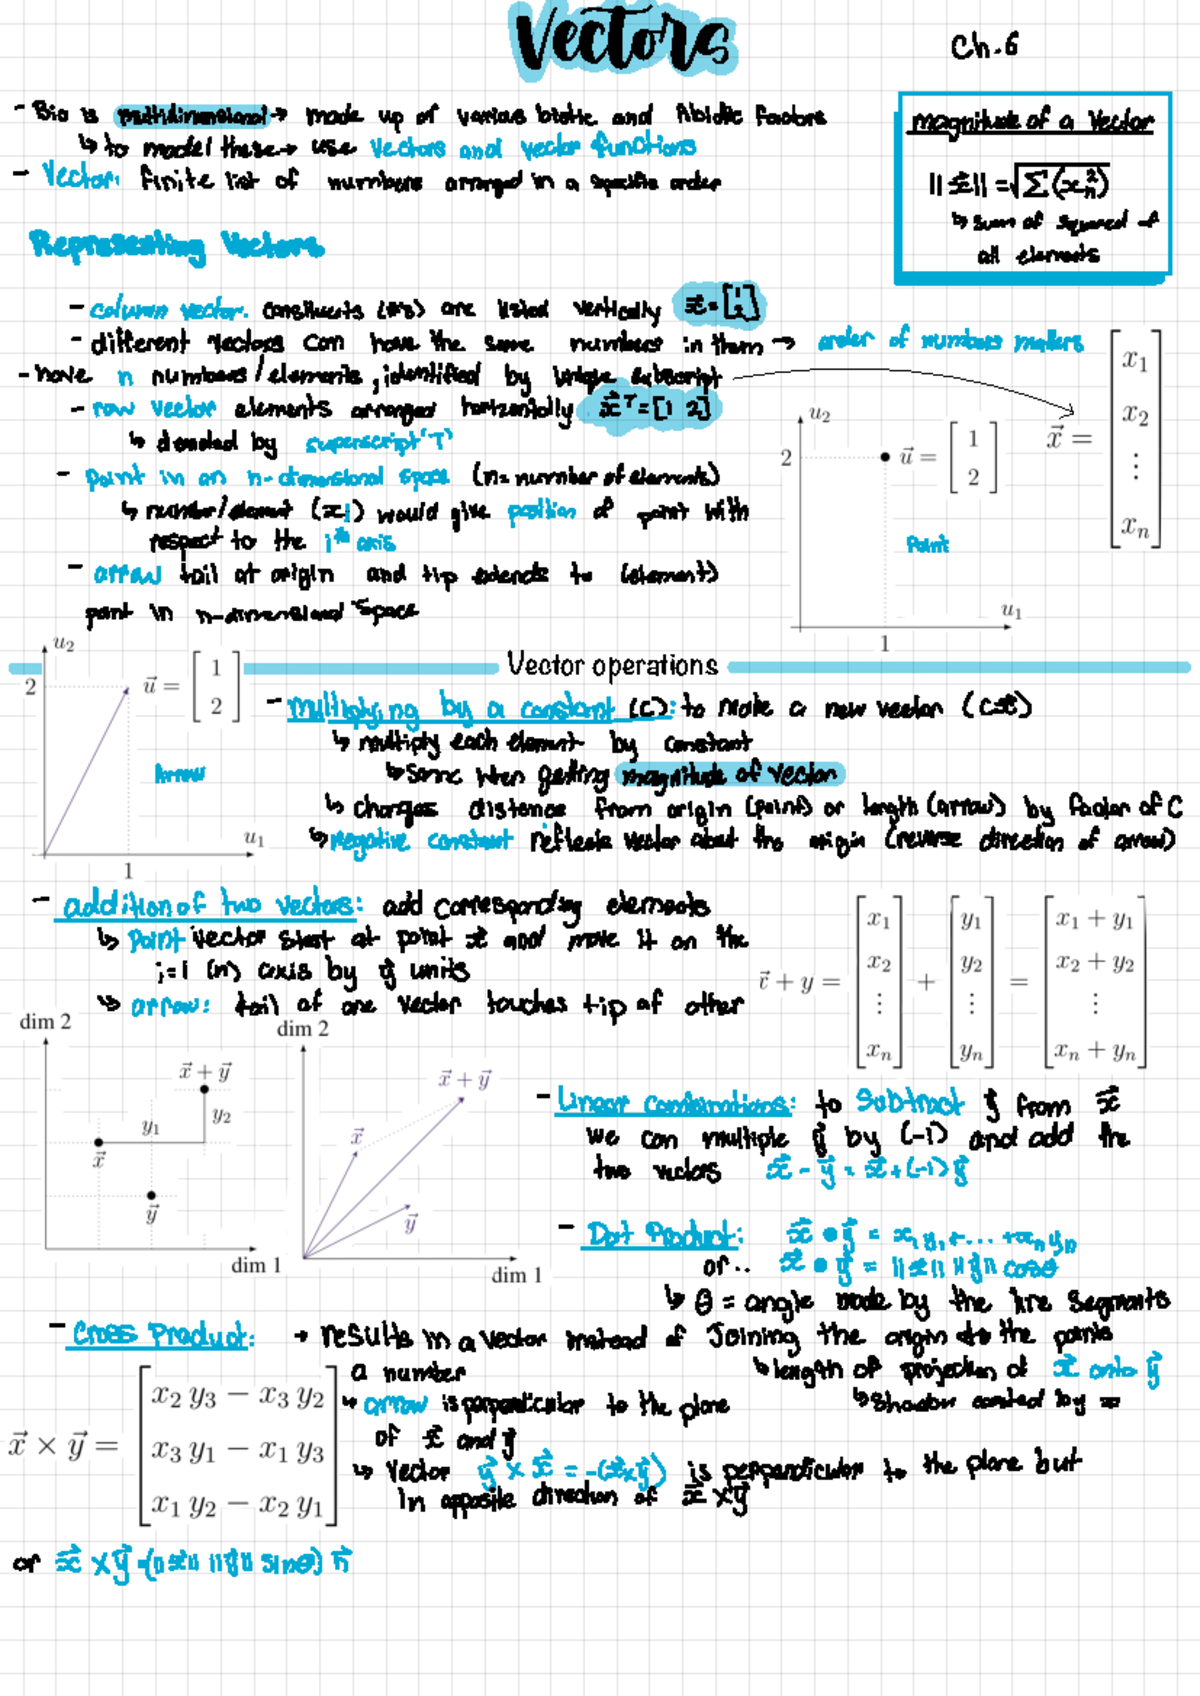 Vectors
Ch.6
- Bio is multidimensional → made up of various biotic and Abiotic factors
↳ to model these → use vectors and vector functions
- Vector: finite list of numbers arranged in a specific order
magnitude of a Vector
||x⃗|| = √Σ(xₙ²)
↳ sum of squared of
all elements
Representing Vectors
- column vector. constituents (#'s) are listed vertically x⃗ = [1 2]
- different vectors can have the same numbers in them → order of numbers matters
- have n numbers/elements, identified by unique subscript
x⃗ = [x₁ x₂ ⋮ xₙ]
- row vector elements arranged horizontally x⃗ᵀ = [1 2]
↳ denoted by superscript 'T'
- point in an n-dimensional space (n = number of elements)
↳ number/element (xi) would give position of point with
respect to the iᵗʰ axis
- arrow tail at origin and tip extends to (element)
point in n-dimensional space
u₂
2
u⃗ = [1 2]
Point
u₁
1
u₂
2
u⃗ = [1 2]
Arrow
u₁
1
Vector operations
- multiplying by a constant (C): to make a new vector (cx⃗)
↳ multiply each element by constant
↳ same when getting magnitude of vector
↳ changes distance from origin (point) or length (arrow) by factor of C
↳ negative constant reflects vector about the origin (reverse direction of arrow)
- addition of two vectors: add corresponding elements
↳ point vector start at point x⃗ and move it on the
i=1 (n) axis by y⃗ units
↳ arrow: tail of one vector touches tip of other
x⃗ + y = [x₁ x₂ ⋮ xₙ] + [y₁ y₂ ⋮ yₙ] = [x₁ + y₁ x₂ + y₂ ⋮ xₙ + yₙ]
dim 2
x⃗ + y⃗
y₂
y₁
x⃗
y⃗
dim 1
dim 2
x⃗ + y⃗
x⃗
y⃗
dim 1
- Linear Combinations: to subtract y⃗ from x⃗
we can multiple y⃗ by (-1) and add the
two vectors x⃗ - y⃗ = x⃗ + (-1)y⃗
- Dot Product: x⃗ • y⃗ = x₁y₁ + ... + xₙyₙ
or.. x⃗ • y⃗ = ||x|| ||y|| cosθ
↳ θ = angle made by the line segments
joining the origin to the points
↳ length of projection of x⃗ onto y⃗
↳ Shadow casted by x
- Cross Product: → results in a vector instead of
a number
↳ arrow is perpendicular to the plane
of x⃗ and y⃗
↳ vector y⃗ × x⃗ = -(x⃗ × y⃗) is perpendicular to the plane but
in opposite direction of x⃗ × y⃗
x⃗ × y⃗ = [x₂ y₃ − x₃ y₂ x₃ y₁ − x₁ y₃ x₁ y₂ − x₂ y₁]
or x⃗ × y⃗ = (||x|| ||y|| sinθ) n⃗